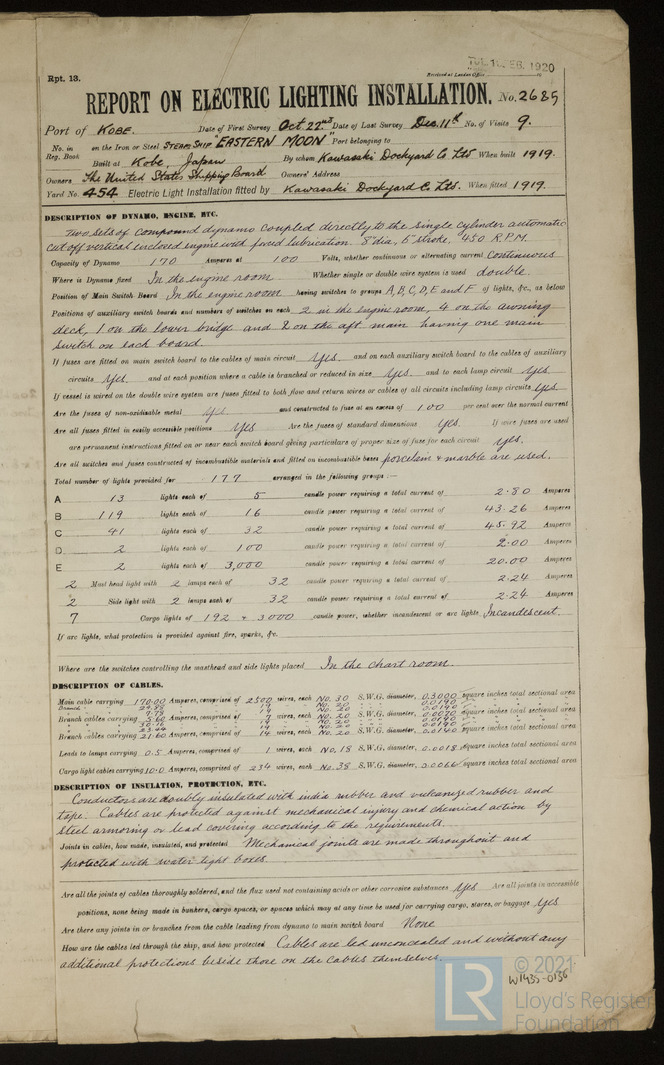 Rpt. 13.
Received at London Office
TUE. 10 FEB. 1920
REPORT ON ELECTRIC LIGHTING INSTALLATION. No. 2685
Port of KOBE. Date of First Survey Oct 22nd Date of Last Survey Dec. 11th No. of Visits 9.
No. in Reg. Book on the Iron or Steel STEAM SHIP "EASTERN MOON" Port belonging to
Built at Kobe, Japan By whom Kawasaki Dockyard Co Ltd When built 1919.
Owners The United States Shipping Board Owners' Address
Yard No. 454 Electric Light Installation fitted by Kawasaki Dockyard Co. Ltd. When fitted 1919.
DESCRIPTION OF DYNAMO, ENGINE, ETC.
Two sets of compound dynamo coupled directly to the single cylinder automatic
cut off vertical enclosed engine with forced lubrication. 8" dia, 5" stroke, 450 R.P.M.
Capacity of Dynamo 170 Amperes at 100 Volts, whether continuous or alternating current Continuous
Where is Dynamo fixed In the engine room Whether single or double wire system is used double.
Position of Main Switch Board In the engine room having switches to groups A, B, C, D, E and F of lights, &c., as below
Positions of auxiliary switch boards and numbers of switches on each 2 in the engine room, 4 on the awning
deck, 1 on the lower bridge and 2 on the aft main having one main
switch on each board.
If fuses are fitted on main switch board to the cables of main circuit Yes. and on each auxiliary switch board to the cables of auxiliary
circuits Yes. and at each position where a cable is branched or reduced in size Yes. and to each lamp circuit Yes.
If vessel is wired on the double wire system are fuses fitted to both flow and return wires or cables of all circuits including lamp circuits Yes
Are the fuses of non-oxidisable metal Yes. and constructed to fuse at an excess of 100 per cent over the normal current
Are all fuses fitted in easily accessible positions Yes Are the fuses of standard dimensions Yes. If wire fuses are used
are permanent instructions fitted on or near each switch board giving particulars of proper size of fuse for each circuit Yes.
Are all switches and fuses constructed of incombustible materials and fitted on incombustible bases porcelain & marble are used.
Total number of lights provided for 177 arranged in the following groups :—
A 13 lights each of 5 candle power requiring a total current of 2.80 Amperes
B 119 lights each of 16 candle power requiring a total current of 43.26 Amperes
C 41 lights each of 32 candle power requiring a total current of 45.92 Amperes
D 2 lights each of 100 candle power requiring a total current of 2.00 Amperes
E 2 lights each of 3,000 candle power requiring a total current of 20.00 Amperes
2 Mast head light with 2 lamps each of 32 candle power requiring a total current of 2.24 Amperes
2 Side light with 2 lamps each of 32 candle power requiring a total current of 2.24 Amperes
7 Cargo lights of 192 & 3000 candle power, whether incandescent or arc lights Incandescent.
If arc lights, what protection is provided against fire, sparks, &c.
Where are the switches controlling the masthead and side lights placed In the chart room.
DESCRIPTION OF CABLES.
Main cable carrying 170.00 Amperes, comprised of 2500 wires, each No. 30 S.W.G. diameter, 0.3000 square inches total sectional area
Branch cables carrying 5.60 Amperes, comprised of 7 wires, each No. 20 S.W.G. diameter, 0.0070 square inches total sectional area
Branch cables carrying 21.60 Amperes, comprised of 14 wires, each No. 20 S.W.G. diameter, 0.0140 square inches total sectional area
Leads to lamps carrying 0.5 Amperes, comprised of 1 wires, each No. 18 S.W.G. diameter, 0.0018 square inches total sectional area
Cargo light cables carrying 10.0 Amperes, comprised of 234 wires, each No. 38 S.W.G. diameter, 0.0066 square inches total sectional area
DESCRIPTION OF INSULATION, PROTECTION, ETC.
Conductors are doubly insulated with india rubber and vulcanized rubber and
tape. Cables are protected against mechanical injury and chemical action by
steel armoring or lead covering according to the requirements.
Joints in cables, how made, insulated, and protected Mechanical joints are made throughout and
protected with water tight boxes.
Are all the joints of cables thoroughly soldered, and the flux used not containing acids or other corrosive substances Yes Are all joints in accessible
positions, none being made in bunkers, cargo spaces, or spaces which may at any time be used for carrying cargo, stores, or baggage Yes
Are there any joints in or branches from the cable leading from dynamo to main switch board None
How are the cables led through the ship, and how protected Cables are led unconcealed and without any
additional protections beside those on the cables themselves.
© 2021
Lloyd's Register
Foundation
LR
W1435-0156